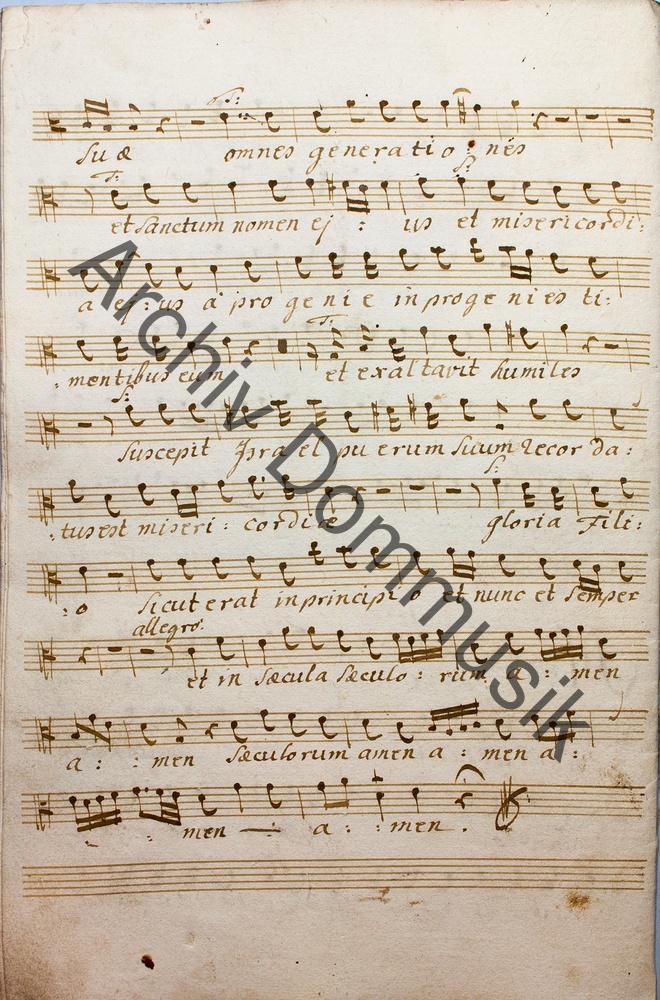 S:
suæ omnes generatio : nes
T: S:
et Sanctum nomen ej : us et misericordi:
a ej : us a pro ge ni e in proge ni es ti:
T:
: mentibus eum et exaltavit humiles
S:
Suscepit Isra el pu erum suum Recor da:
S:
: tus est miseri : cordiæ gloria Fili:
: o Sicut erat in principi o et nunc et Semper
allegro:
et in Sæcula Sæculo : rum a : men
a : : men Sæculorum amen a : men a :
: men — a : : men .
Archiv Dommusik